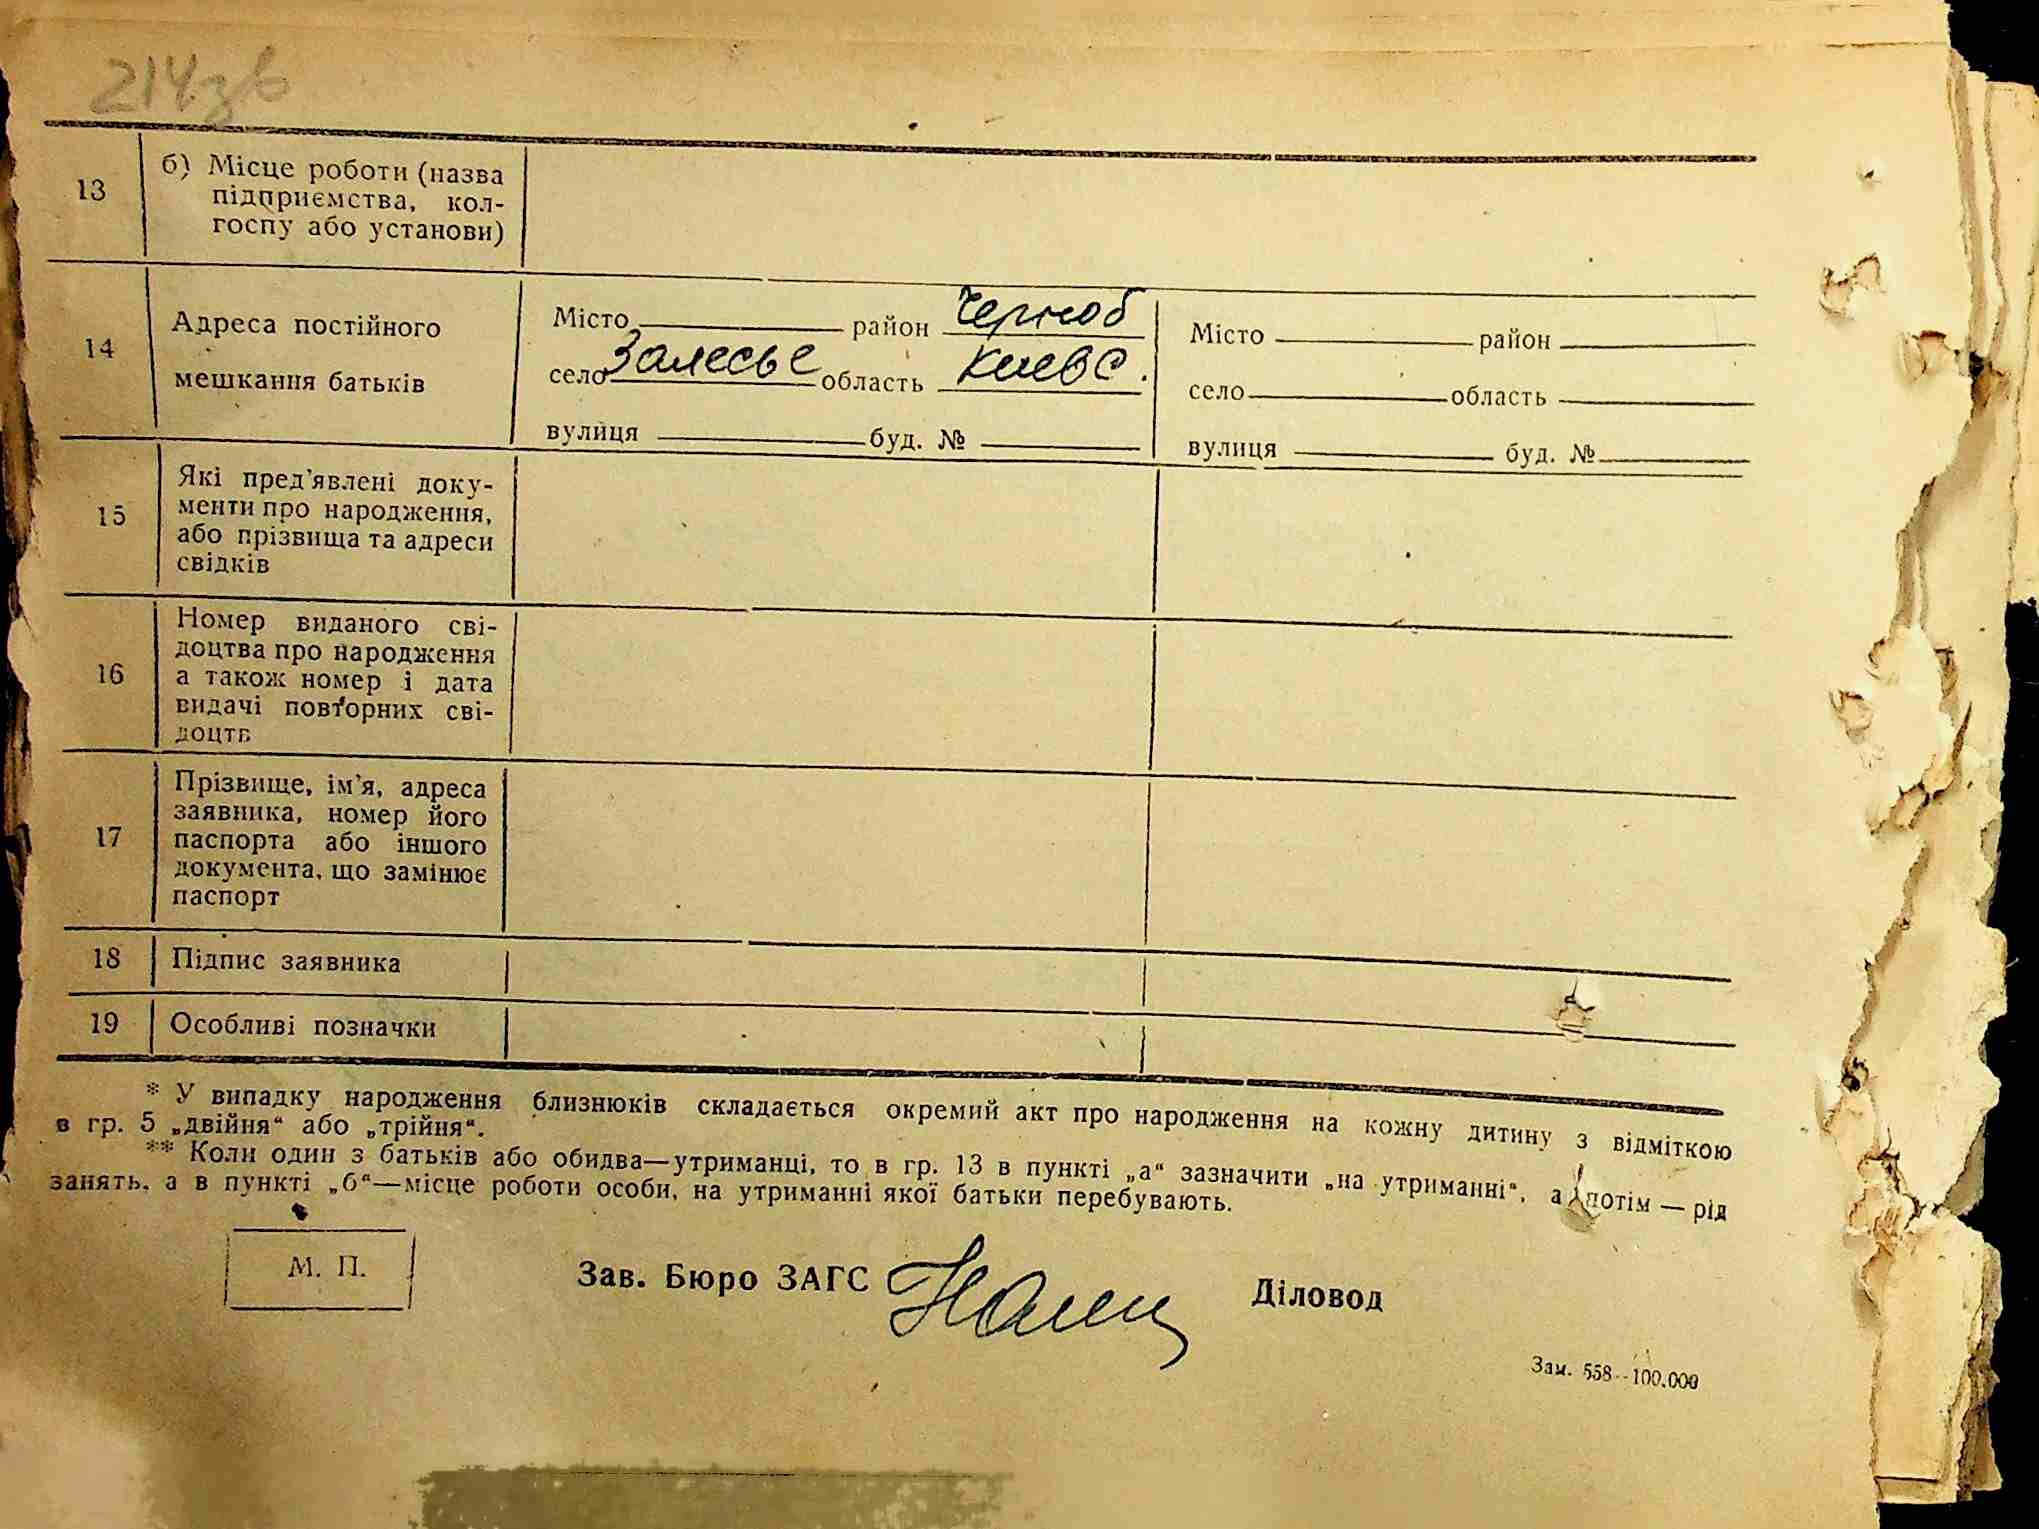 214зв
13 б) Місце роботи (назва
підприємства, кол-
госпу або установи)
14 Адреса постійного
мешкання батьків
Місто район Черноб
село Залесье область Киевс.
вулиця буд. №
Місто район
село область
вулиця буд. №
15 Які пред'явлені доку-
менти про народження,
або прізвища та адреси
свідків
16 Номер виданого сві-
доцтва про народження
а також номер і дата
видачі повторних сві-
доцтв
17 Прізвище, ім'я, адреса
заявника, номер його
паспорта або іншого
документа, що замінює
паспорт
18 Підпис заявника
19 Особливі позначки
* У випадку народження близнюків складається окремий акт про народження на кожну дитину з відміткою
в гр. 5 „двійня“ або „трійня“.
** Коли один з батьків або обидва—утриманці, то в гр. 13 в пункті „а“ зазначити „на утриманні“, а потім — рід
занять, а в пункті „б“—місце роботи особи, на утриманні якої батьки перебувають.
М. П.
Зав. Бюро ЗАГС
Діловод
Зам. 558--100.000